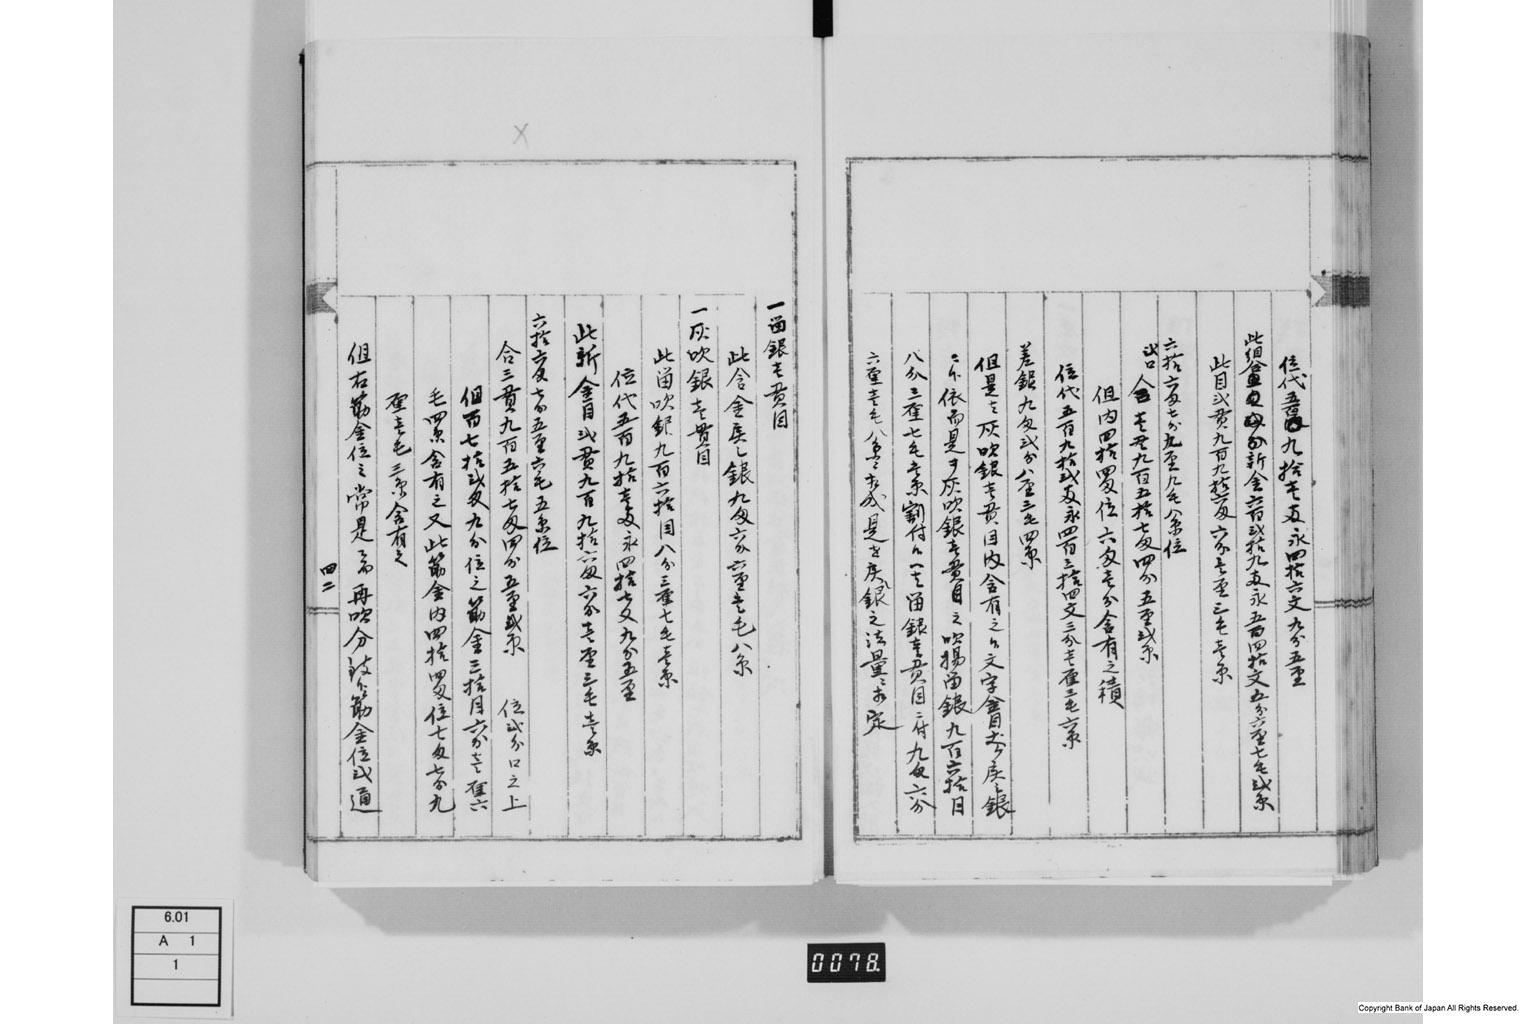 位代五百九拾壱両永四拾六文九分五厘
新金六百弐拾九両永五百四拾文五分六厘七毛弐糸
此目弐貫九百九拾六匁六分壱厘三毛壱糸
六拾六匁七分九厘九毛八糸位
弐口合壱貫九百五拾七匁四分五厘弐糸
但内四拾四匁位六匁壱分含有之積
位代五百九拾弐両永四百三拾四文三分壱厘三毛六糸
差銀九匁弐分八厘三毛四糸
但是者灰吹銀壱貫目内含有之分文字金目戻シ銀
ニ不依而是ヲ灰吹銀壱貫目之吹揚留銀九百六拾目
八分三厘七毛壱糸割付候ハ留銀壱貫目ニ付九匁六分
六厘壱毛八糸ニ相成是を戻シ銀之法量ニ相定
一留銀壱貫目
此含金戻シ銀九匁六分六厘壱毛八糸
一灰吹銀壱貫目
此留吹銀九百六拾目八分三厘七毛壱糸
位代五百九拾壱両永四拾七文九分五厘
此新金目弐貫九百九拾六匁六分壱厘三毛壱糸
六拾六匁七分五厘六毛五糸位
合三貫九百五拾七匁四分五厘弐糸 位弐分口之上
但百七拾弐匁九分位之筋金三拾目六分壱厘六
毛四糸含有之又此筋金内四拾四匁位七匁七分九
厘壱毛三糸含有之
但右筋金位之常是ニ而再吹分致候筋金位弐通
四二
6.01
A 1
1
0078
Copyright Bank of Japan All Rights Reserved.